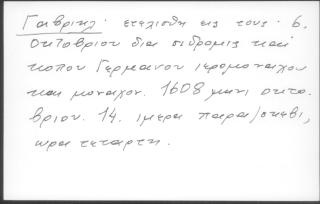 Γαβριηλ· ετελισθη εις τους · 6.
Οκτοβριου δια σιδρομις και
κοπου Γερμανου ιερομοναχου
και μοναχον. 1608 μηνι οκτο.
βριου. 14. ιμερα παρα/σκεβι,
ωρα τεταρτη.